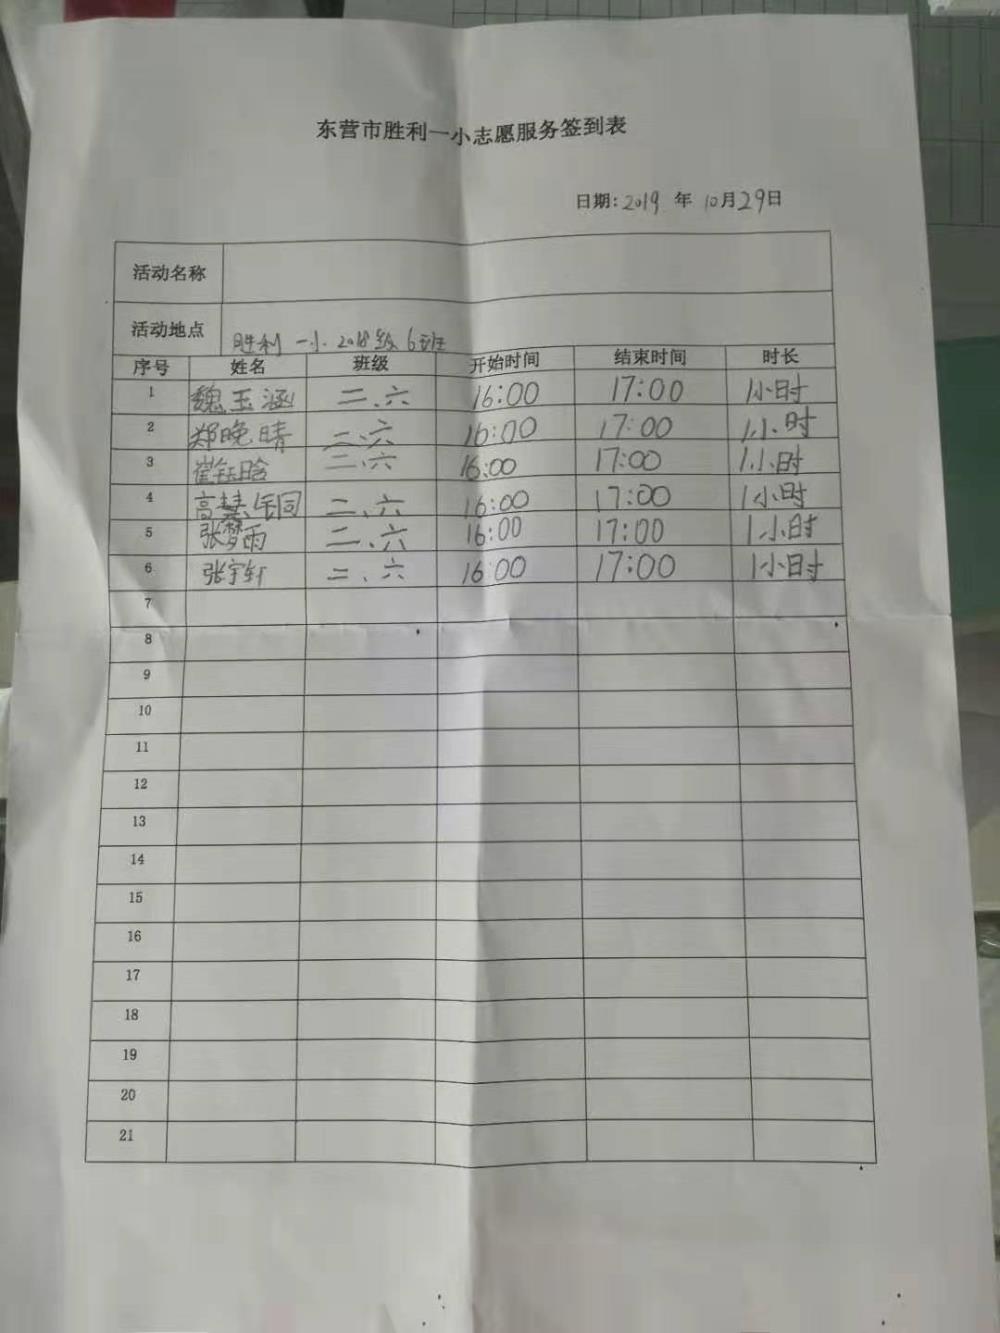 东营市胜利一小志愿服务签到表
日期：2019 年 10月29日
活动名称
活动地点 胜利一小 2018级 6班
序号 姓名 班级 开始时间 结束时间 时长
1 魏玉涵 二、六 16:00 17:00 1小时
2 郑晚晴 二、六 16:00 17:00 1小时
3 崔钰晗 二、六 16:00 17:00 1小时
4 高慧 二、六 16:00 17:00 1小时
5 张梦雨 二、六 16:00 17:00 1小时
6 张宇轩 二、六 16:00 17:00 1小时
7
8
9
10
11
12
13
14
15
16
17
18
19
20
21